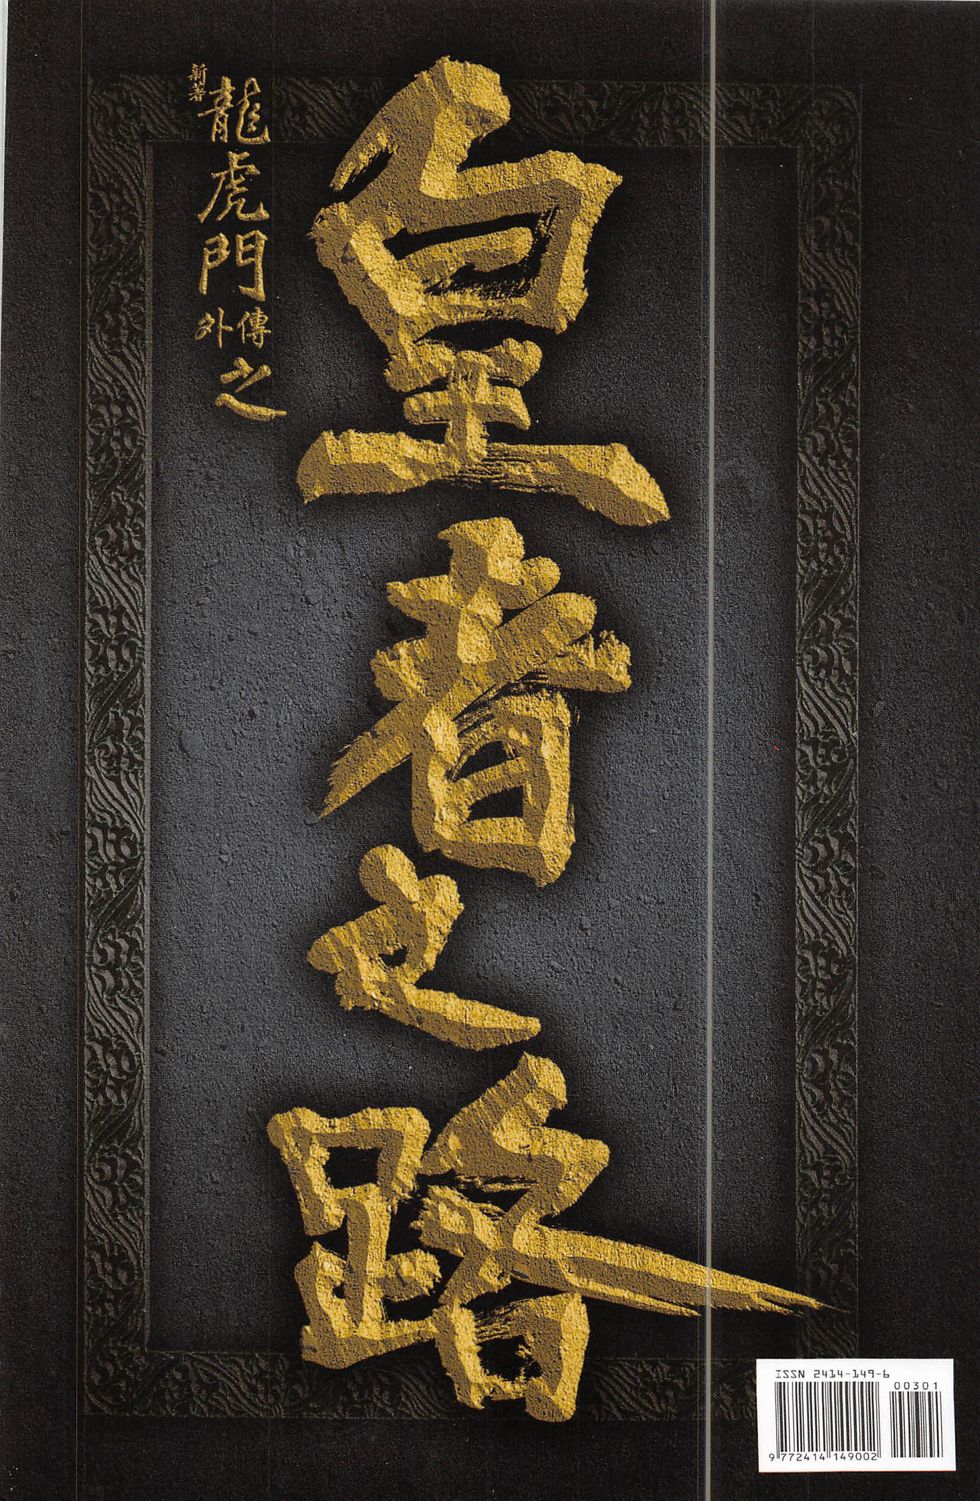 新著
龍虎門
外傳
之
皇者之路
ISSN 2414-149-6
00301
9 772414 149002